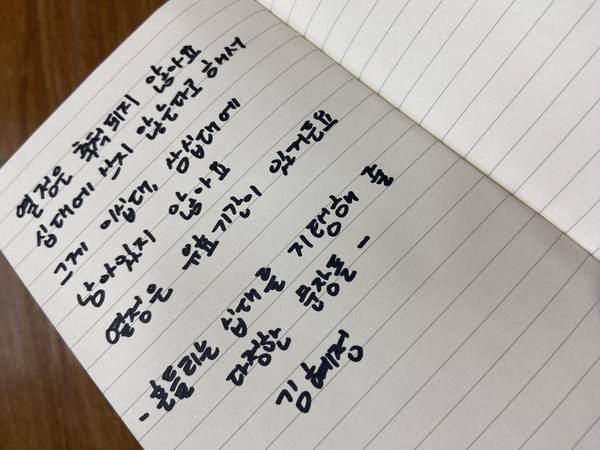 열정은 축적되지 않아요
십대에 쓰지 않는다고 해서
그게 이십대, 삼십대에
남아있지 않아요
열정은 유효기간이 있거든요
- 흔들리는 십대를 지탱해 줄
다정한 문장들 -
김혜정